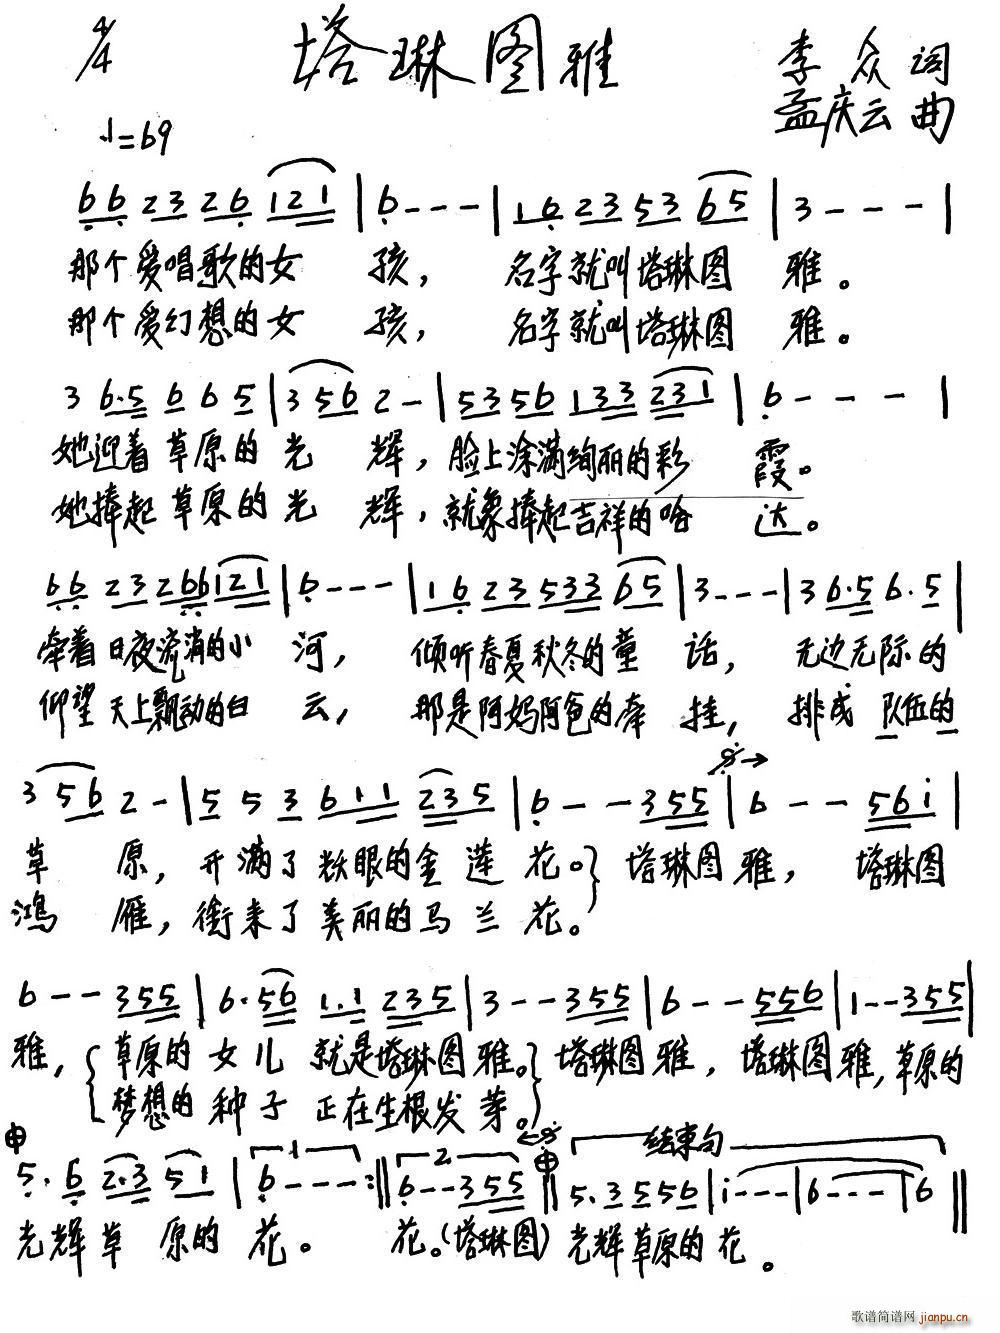 4/4 塔琳图雅 李众词
孟庆云曲
♩=69
6 6 2 3 2 6 1 2 1 | 6 - - - | 1 6 2 3 5 3 6 5 | 3 - - - |
那个爱唱歌的女 孩， 名字就叫塔琳图 雅。
那个爱幻想的女 孩， 名字就叫塔琳图 雅。
3 6·5 6 6 5 | 3 5 6 2 - | 5 3 5 6 1 3 3 2 3 1 | 6 - - - |
她迎着草原的光 辉，脸上涂满绚丽的彩 霞。
她捧起草原的光 辉，就象捧起吉祥的哈 达。
6 6 2 3 2 6 6 1 2 1 | 6 - - - | 1 6 2 3 5 3 3 6 5 | 3 - - - | 3 6·5 6·5 |
牵着日夜流淌的小 河， 倾听春夏秋冬的童 话， 无边无际的
仰望天上飘动的白 云， 那是阿妈阿爸的牵 挂， 排成队伍的
3 5 6 2 - | 5 5 3 6 1 1 2 3 5 | 6 - - 3 5 5 | 6 - - 5 6 i |
草 原，开满了耀眼的金莲 花。塔琳图雅， 塔琳图
鸿 雁，衔来了美丽的马兰 花。
6 - - 3 5 5 | 6·5 6 1·1 2 3 5 | 3 - - 3 5 5 | 6 - - 5 5 6 | 1 - - 3 5 5 |
雅，草原的女儿 就是塔琳图雅。塔琳图雅，塔琳图雅，草原的
梦想的种子 正在生根发芽。
结束句
5·6 2·3 5 1 | 1 6 - - - :‖ 2 6 - - 3 5 5 ‖ 5·3 5 5 6 | i - - - | 6 - - - | 6 ‖
光辉草 原的 花。 花。(塔琳图) 光辉草原的花。
歌谱简谱网 jianpu.cn